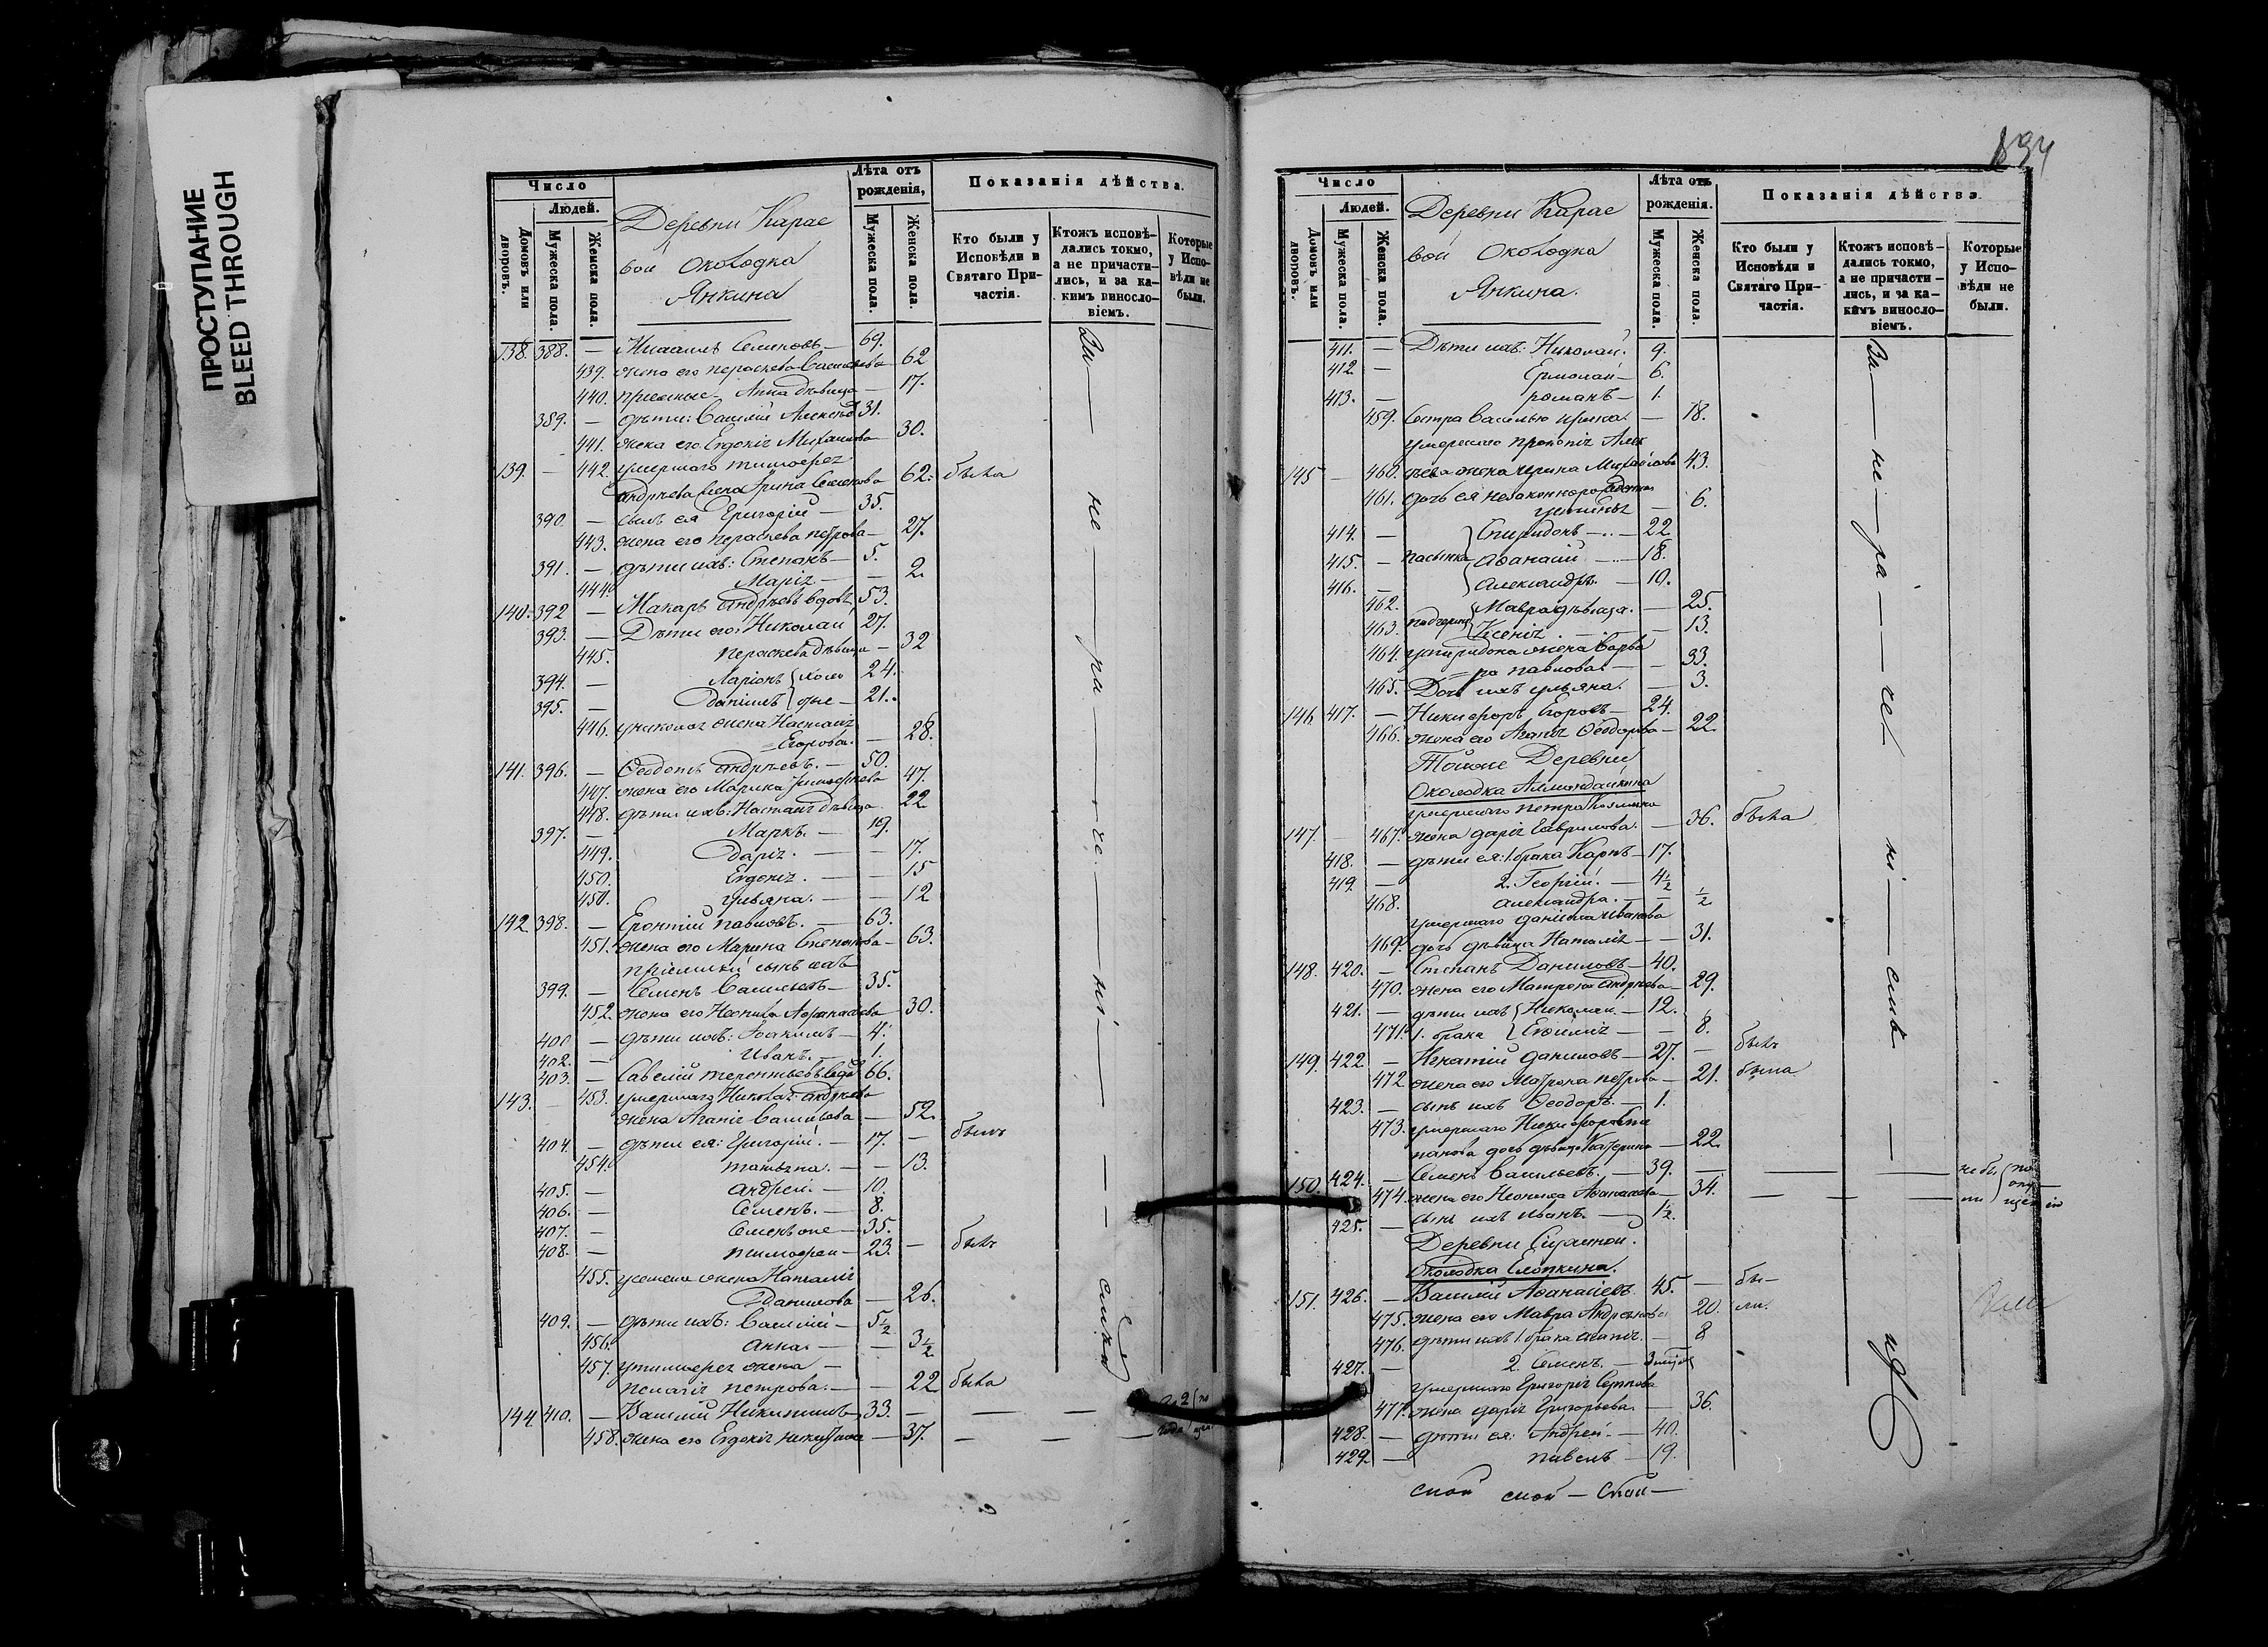 ПРОСТУПАНИЕ
BLEED THROUGH
Число
Людей.
Домовъ или дворовъ.
Мужеска пола.
Женска пола.
Деревни Карае
вой Околодка
Янкина
Лѣта отъ рожденія,
Мужеска пола.
Женска пола.
Показанія дѣйства.
Кто были у Исповѣди и Святаго Причастія.
Ктожъ исповѣдались токмо, а не причастились, и за какимъ винословіемъ.
Которые у Исповѣди не были.
138. 388. — Семеновъ — 69.
439. жена его Параскева Васильева 62
440. Анна дѣвица — 17.
389. — дѣти: Василій Алексѣев 31.
441. жена его Евдокія Михайлова 30.
139. — 442. умершаго Тимоѳея
Андрѣева жена Ирина Семенова 62. была
390. — сынъ ея Григорій — 35.
443. жена его Параскева Петрова — 27.
391. — дѣти ихъ: Степанъ — 5.
444. Марія — — 2.
140. 392 — Макаръ Андрѣевъ вдовъ 53.
393. — Дѣти его: Николай 27.
445. Параскева дѣвица — 32
394. — Ларіонъ холо 24.
395. — Даніилъ стые — 21.
446. у Николая жена Настасія
Егорова. — 28.
141. 396. — Ѳедотъ Андрѣевъ. — 50.
447. жена его Марина Тимоѳеева 47.
448. дѣти ихъ: Настасія дѣвица 22
397. — Маркъ. — 19.
449. Дарія. — — 17.
450. Евдокія. — — 15
450. Ульяна. — — 12
142. 398. — Павловъ. — 63.
451. жена его Марина Степанова — 63.
пріемный сынъ ихъ
399. — Семенъ Васильевъ — 35.
452. жена его Неонила Аѳанасьева 30.
400 — дѣти ихъ: Іоакимъ — 4.
402. — Иванъ. — 1.
403. — Савелій Терентьевъ вдов 66.
143. — 453. умершаго Николая Андрѣева
жена Агапія Васильева — 52.
404. — дѣти ея: Григорій. — 17. — былъ
454. Татьяна. — — 13.
405. — Андрей. — 10.
406. — Семенъ. — 8.
407. — Семенъ же — 35.
408. — Тимоѳей — 23. — былъ
455. у Семена жена Наталія
Данилова — 26.
409. — дѣти ихъ: Василій — 5½
456. Анна. — — 3½
457. у Тимоѳея жена —
Пелагія Петрова. — — 22 была
144. 410. — Василій Никитинъ 33. — — —
458. жена его Евдокія Никитина — 37. — — —
Вы — не — ра — че — ні — — — сынки
Число
Людей.
Домовъ или дворовъ.
Мужеска пола.
Женска пола.
Деревни Карае
вой Околодка
Янкина.
Лѣта отъ рожденія.
Мужеска пола.
Женска пола.
Показанія дѣйства
Кто были у Исповѣди и Святаго Причастія.
Ктожъ исповѣдались токмо, а не причастились, и за какимъ винословіемъ.
Которые у Исповѣди не были.
411. — Дѣти ихъ: Николай. 9.
412. — Ермолай — 6.
413. — Романъ — 1.
459. Сестра Василью Ирина. — 18.
умершаго Прокопія Алек
145 — 460. сѣева жена Ирина Михайлова 43.
461. дочь ея незаконнорожденная
Устинья — 6.
414. — Спиридонъ — 22
415. — пасынки Аѳанасій — 18.
416. — Александръ. — 10.
462. Мавра дѣвица. — 25.
463. падчерицы Ксенія. — — 13.
464. у Спиридона жена Варва
ра Павлова — — 33.
465. Дочь ихъ Ульяна. — 3.
146. 417. — Никифоръ Егоровъ — 24.
466. жена его Агапія Ѳеодорова — 22.
Тойже Деревни
Околодка Алмандайкина
умершаго Петра Козмина
147. — 467. жена Дарія Гаврилова. — 36. была
418. — дѣти ея: 1. брака Карпъ — 17.
419. — 2. Георгій. — 4½
468. Александра. — — ½
умершаго Даніила Иванова
469. дочь дѣвица Наталія — — 31.
148. 420. — Степанъ Даниловъ — 40.
470. жена его Матрона Андрѣева — 29.
421. — дѣти ихъ Николай. — 12.
471. 1. брака Евѳимія — — 8.
149. 422 — Игнатій Даниловъ — 27. — былъ
472 жена его Матрона Петрова — 21. была
423. — сынъ ихъ Ѳеодоръ. — 1.
473. умершаго Никифора Сте
панова дочь дѣвица Катерина — 22.
150. 424. — Семенъ Васильевъ. — 39. — — — не бы по
474. жена его Неонила Аѳанасьева — 34. — — — ли опу щен ію
425. — сынъ ихъ Иванъ. — 1½.
Деревни
Околодка Слопкина.
151. 426. — Василій Аѳанасіевъ 45. — бы-
475. жена его Мавра Андрѣянова 20. ли.
476. дѣти ихъ 1. брака Агапія. — 8
427. — 2. Семенъ. — 3 мѣся
умершаго Григорія
477. жена Дарія Григорьева. — 36.
428. — дѣти ея: Андрей — 40.
429. — Павелъ — 19.
Вы — не — ра — че — ні — сынъ —